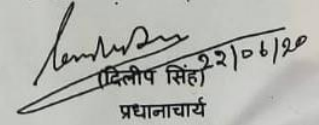 22/06/20
(दिलीप सिंह)
प्रधानाचार्य